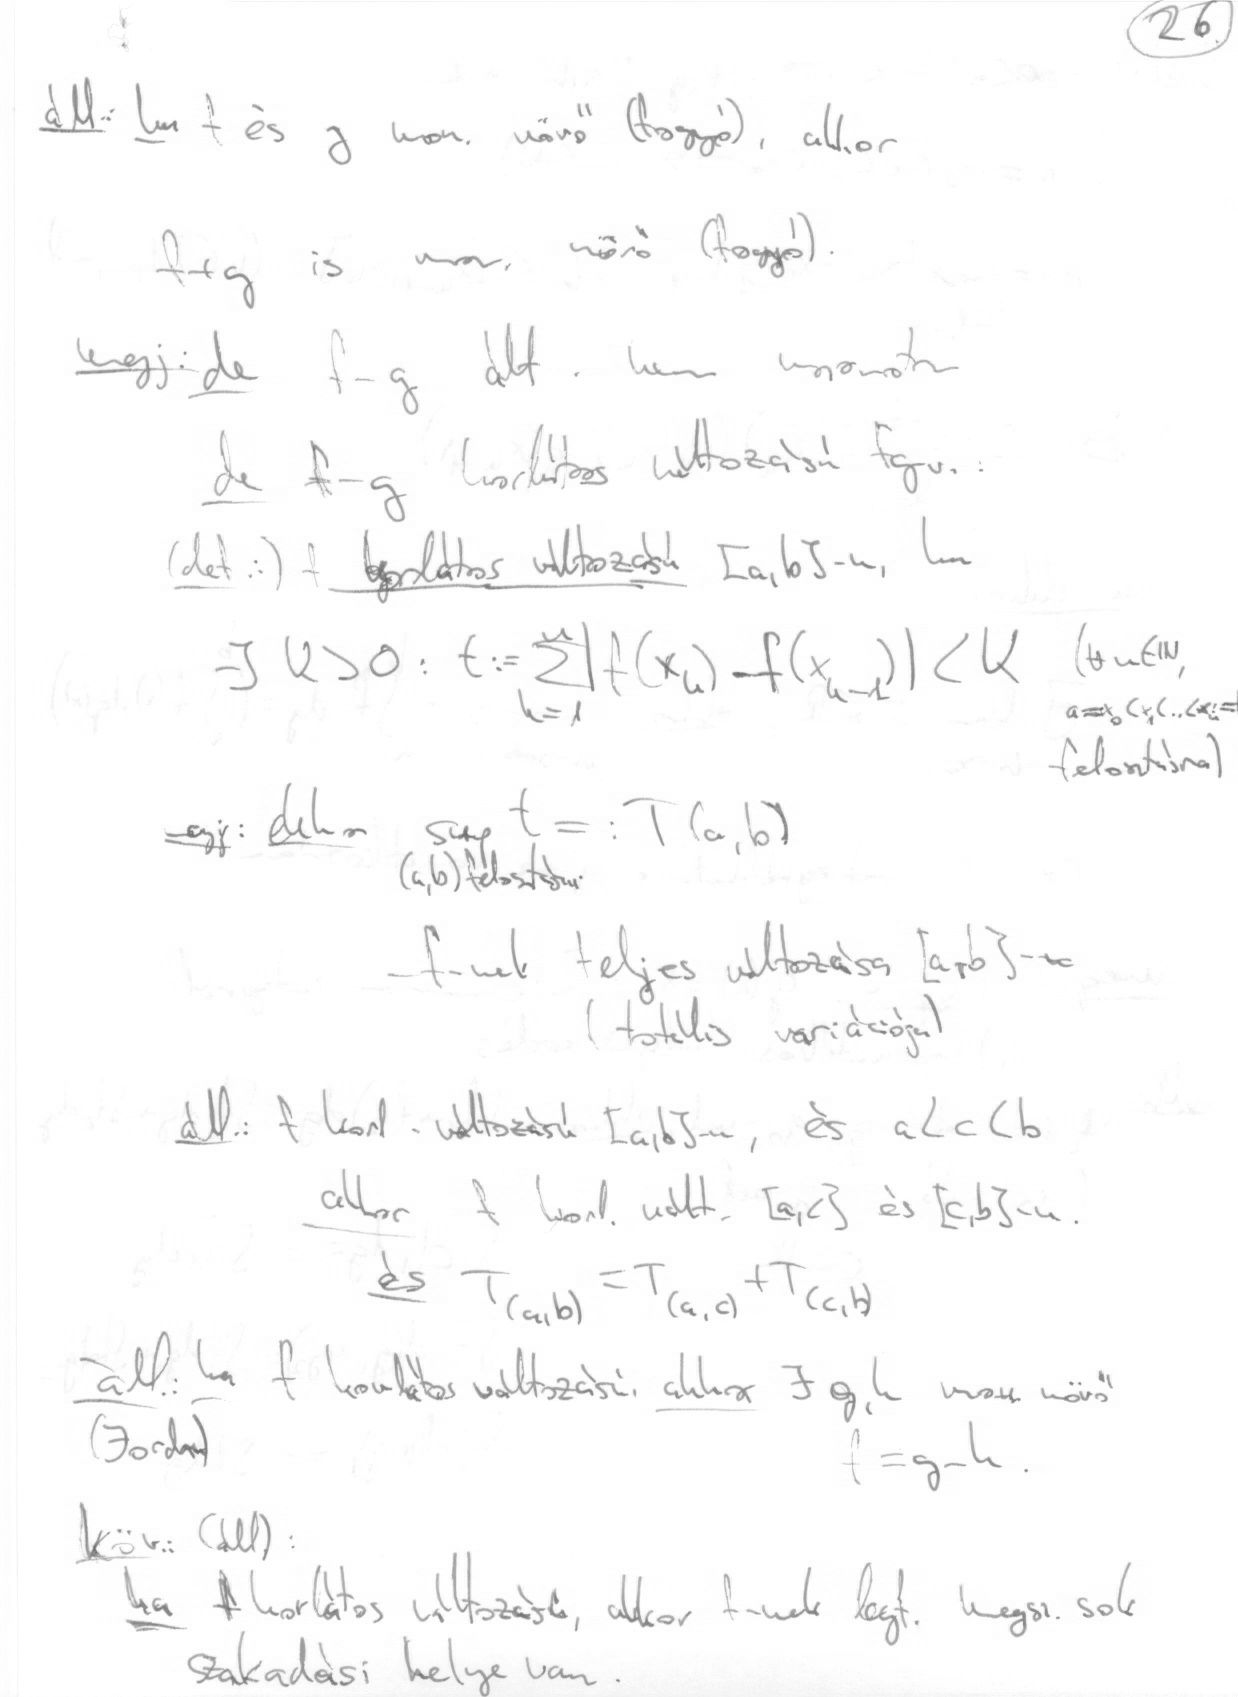 26.
áll.: ha f és g mon. növő (fogyó), akkor
f+g is mon. növő (fogyó).
megj.: de f-g ált. nem monoton
de f-g korlátos változású fgv.:
(def.:) f korlátos változású [a,b]-n, ha
∃ K>0: t:= Σ_{k=1}^{n} |f(x_k) - f(x_{k-1})| < K (∀ n∈ℕ,
a=x_0<x_1<..<x_n=b
felosztásra)
megj: ekkor sup t =: T(a,b)
(a,b) felosztásai
f-nek teljes változása [a,b]-n
(totális variációja)
áll.: f korl. változású [a,b]-n, és a<c<b
akkor f korl. vált. [a,c] és [c,b]-n.
és T_(a,b) = T_(a,c) + T_(c,b)
áll.: ha f korlátos változású. akkor ∃ g,h mon növő
(Jordan) f = g-h.
köv.: (áll):
ha f korlátos változású, akkor f-nek legf. megsz. sok
szakadási helye van.